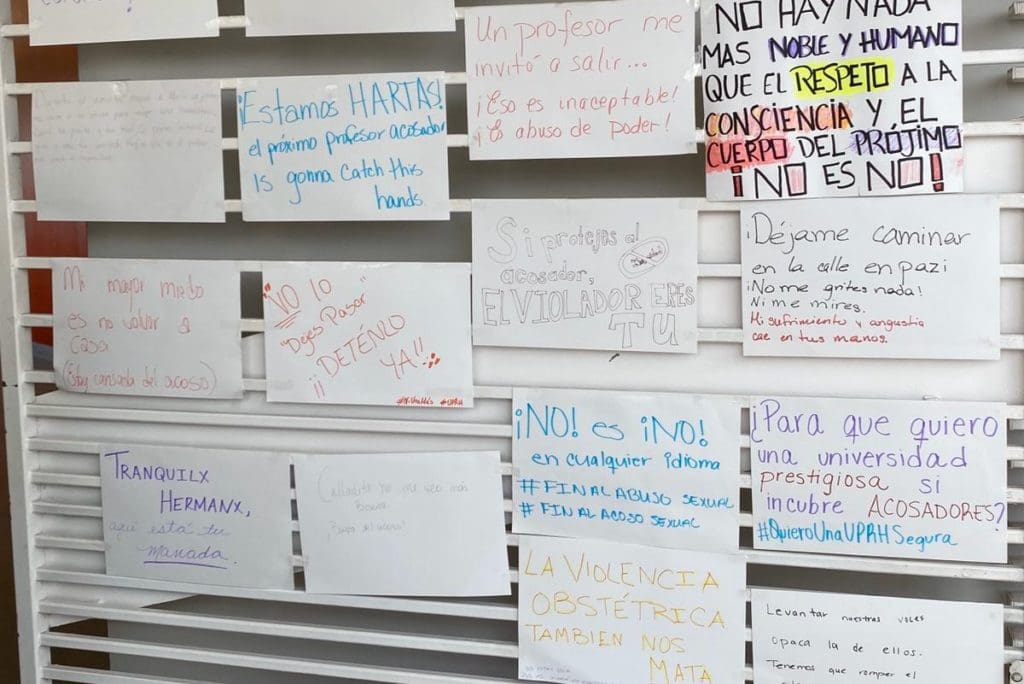 ¡Estamos HARTAS!
el próximo profesor acosador
is gonna catch this
hands
Un profesor me
invitó a salir...
¡Eso es inaceptable!
¡Es abuso de poder!
NO HAY NADA
MAS NOBLE Y HUMANO
QUE EL RESPETO A LA
CONSCIENCIA Y EL
CUERPO DEL PRÓJIMO
¡NO ES NO!
Mi mayor miedo
es no volver a
casa
(Estoy cansada del acoso)
¡¡NO lo
Dejes Pasar"
¡¡DETÉNLO
YA!!
#UPRH
Si proteges al
acosador,
EL VIOLADOR ERES
TU
¡Déjame caminar
en la calle en paz¡
¡No me grites nada!
Ni me mires.
Mi sufrimiento y angustia
cae en tus manos.
TRANQUILX
HERMANX,
aquí está tu
manada.
Calladita no me veo más
bonita
¡NO! es ¡NO!
en cualquier idioma
#FIN AL ABUSO SEXUAL
#FIN AL ACOSO SEXUAL
¿Para que quiero
una universidad
prestigiosa si
incubre ACOSADORES?
#QuieroUnaUPRHSegura
LA VIOLENCIA
OBSTÉTRICA
TAMBIEN NOS
MATA
Levantar nuestras voces
opaca la de ellos.
Tenemos que romper el